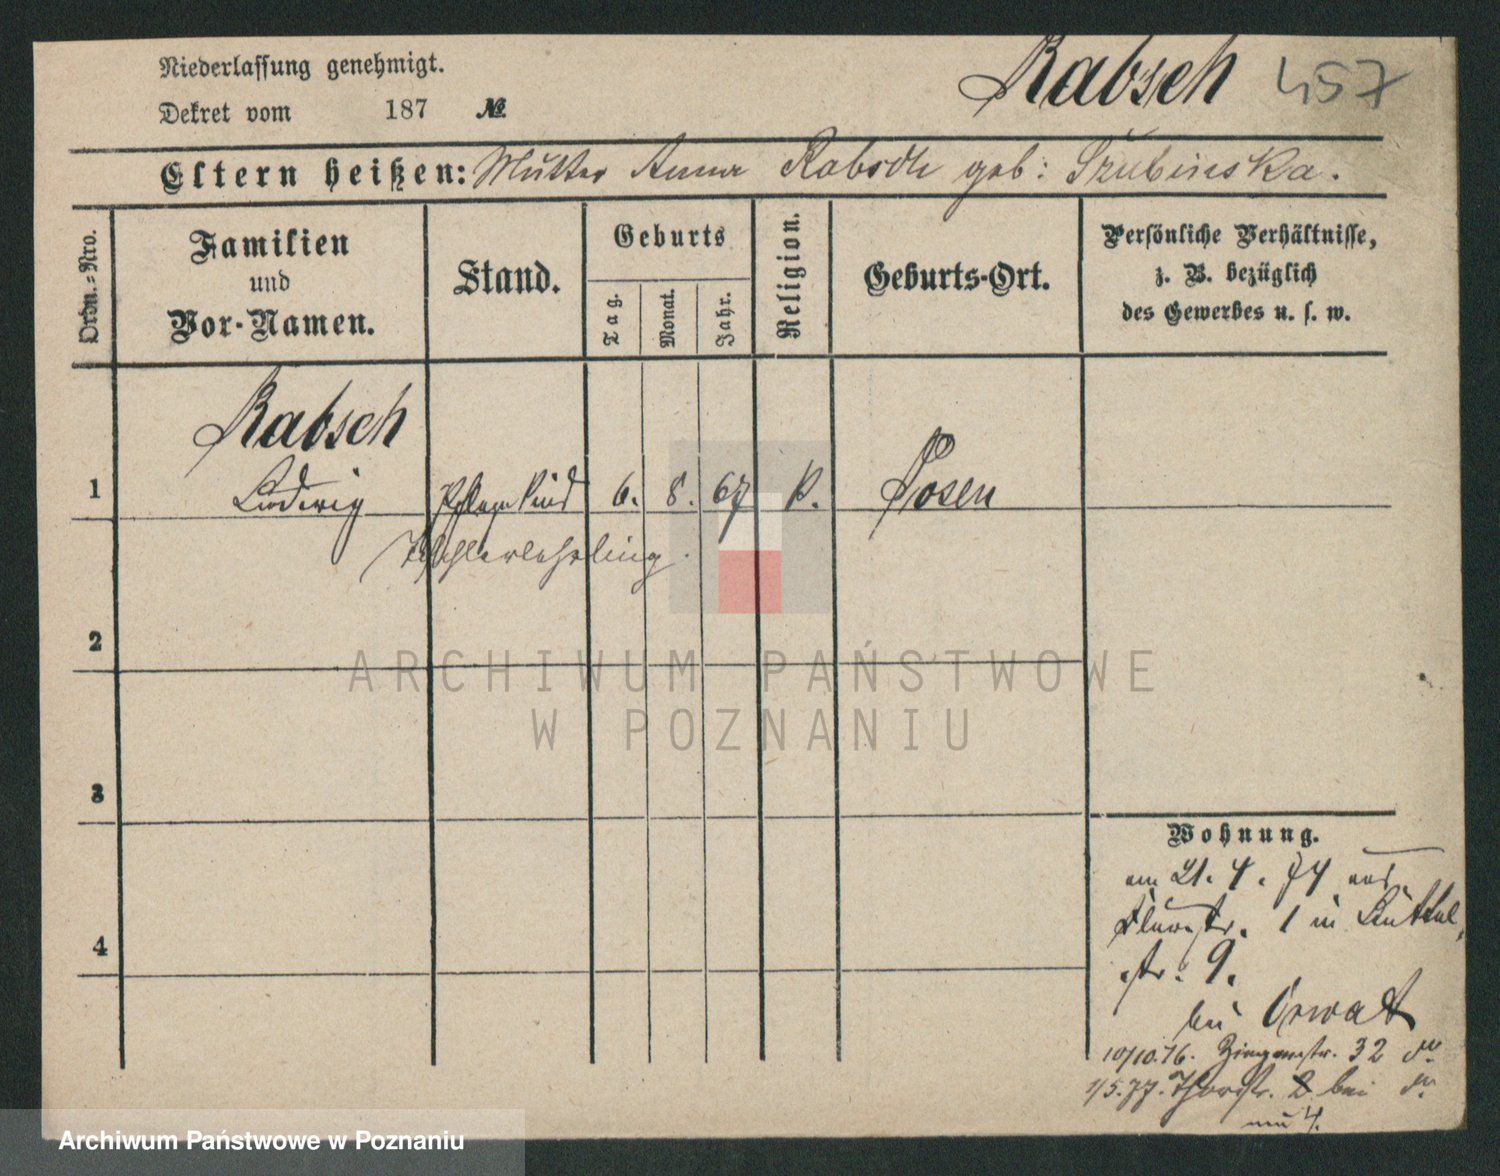 Niederlassung genehmigt.
Rabsch 457
Dekret vom 187 №
Eltern heißen: Mutter Anna Rabsch geb: Szubinska.
Ordn.-Nro.
Familien
und
Vor-Namen.
Stand.
Geburts
Tag.
Monat.
Jahr.
Religion.
Geburts-Ort.
Persönliche Verhältnisse,
z. B. bezüglich
des Gewerbes u. s. w.
Rabsch
1 Ludwig Pflegekind 6. 8. 67 k. Posen
Tischlerlehrling.
2
3
4
Wohnung.
am 21. 4. 74 aus
str. 1 in Büttel
str. 9.
bei
10/10.76. Ziegenstr. 32 do
1/5.77. Thorstr. 2 bei do
4.
ARCHIWUM PAŃSTWOWE
W POZNANIU
Archiwum Państwowe w Poznaniu